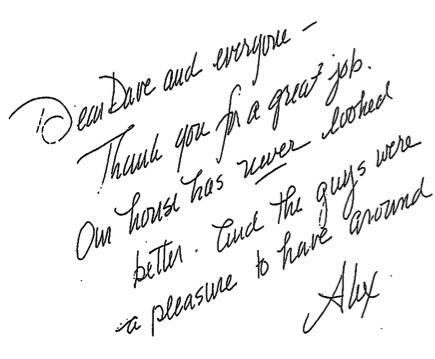 Dear Dave and everyone –
Thank you for a great job.
Our house has never looked
better. And the guys were
a pleasure to have around
Alex